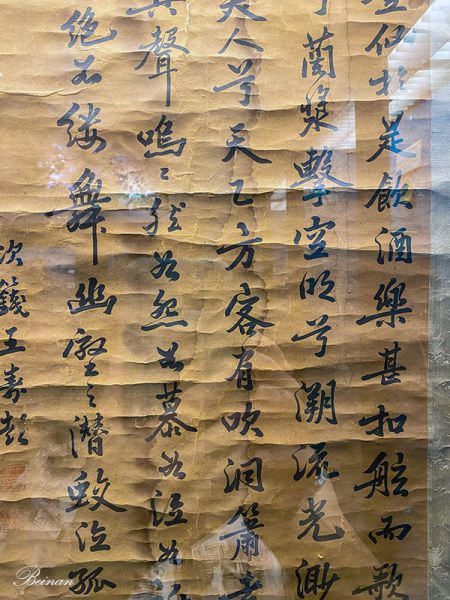 登仙於是飲酒樂甚扣舷而歌
兮蘭槳擊空明兮溯流光渺
美人兮天乙方客有吹洞簫者
其聲嗚〻然如怨如慕如泣如訴
絕如縷舞幽壑之潛蛟泣孤
次籛王壽彭
Beinan